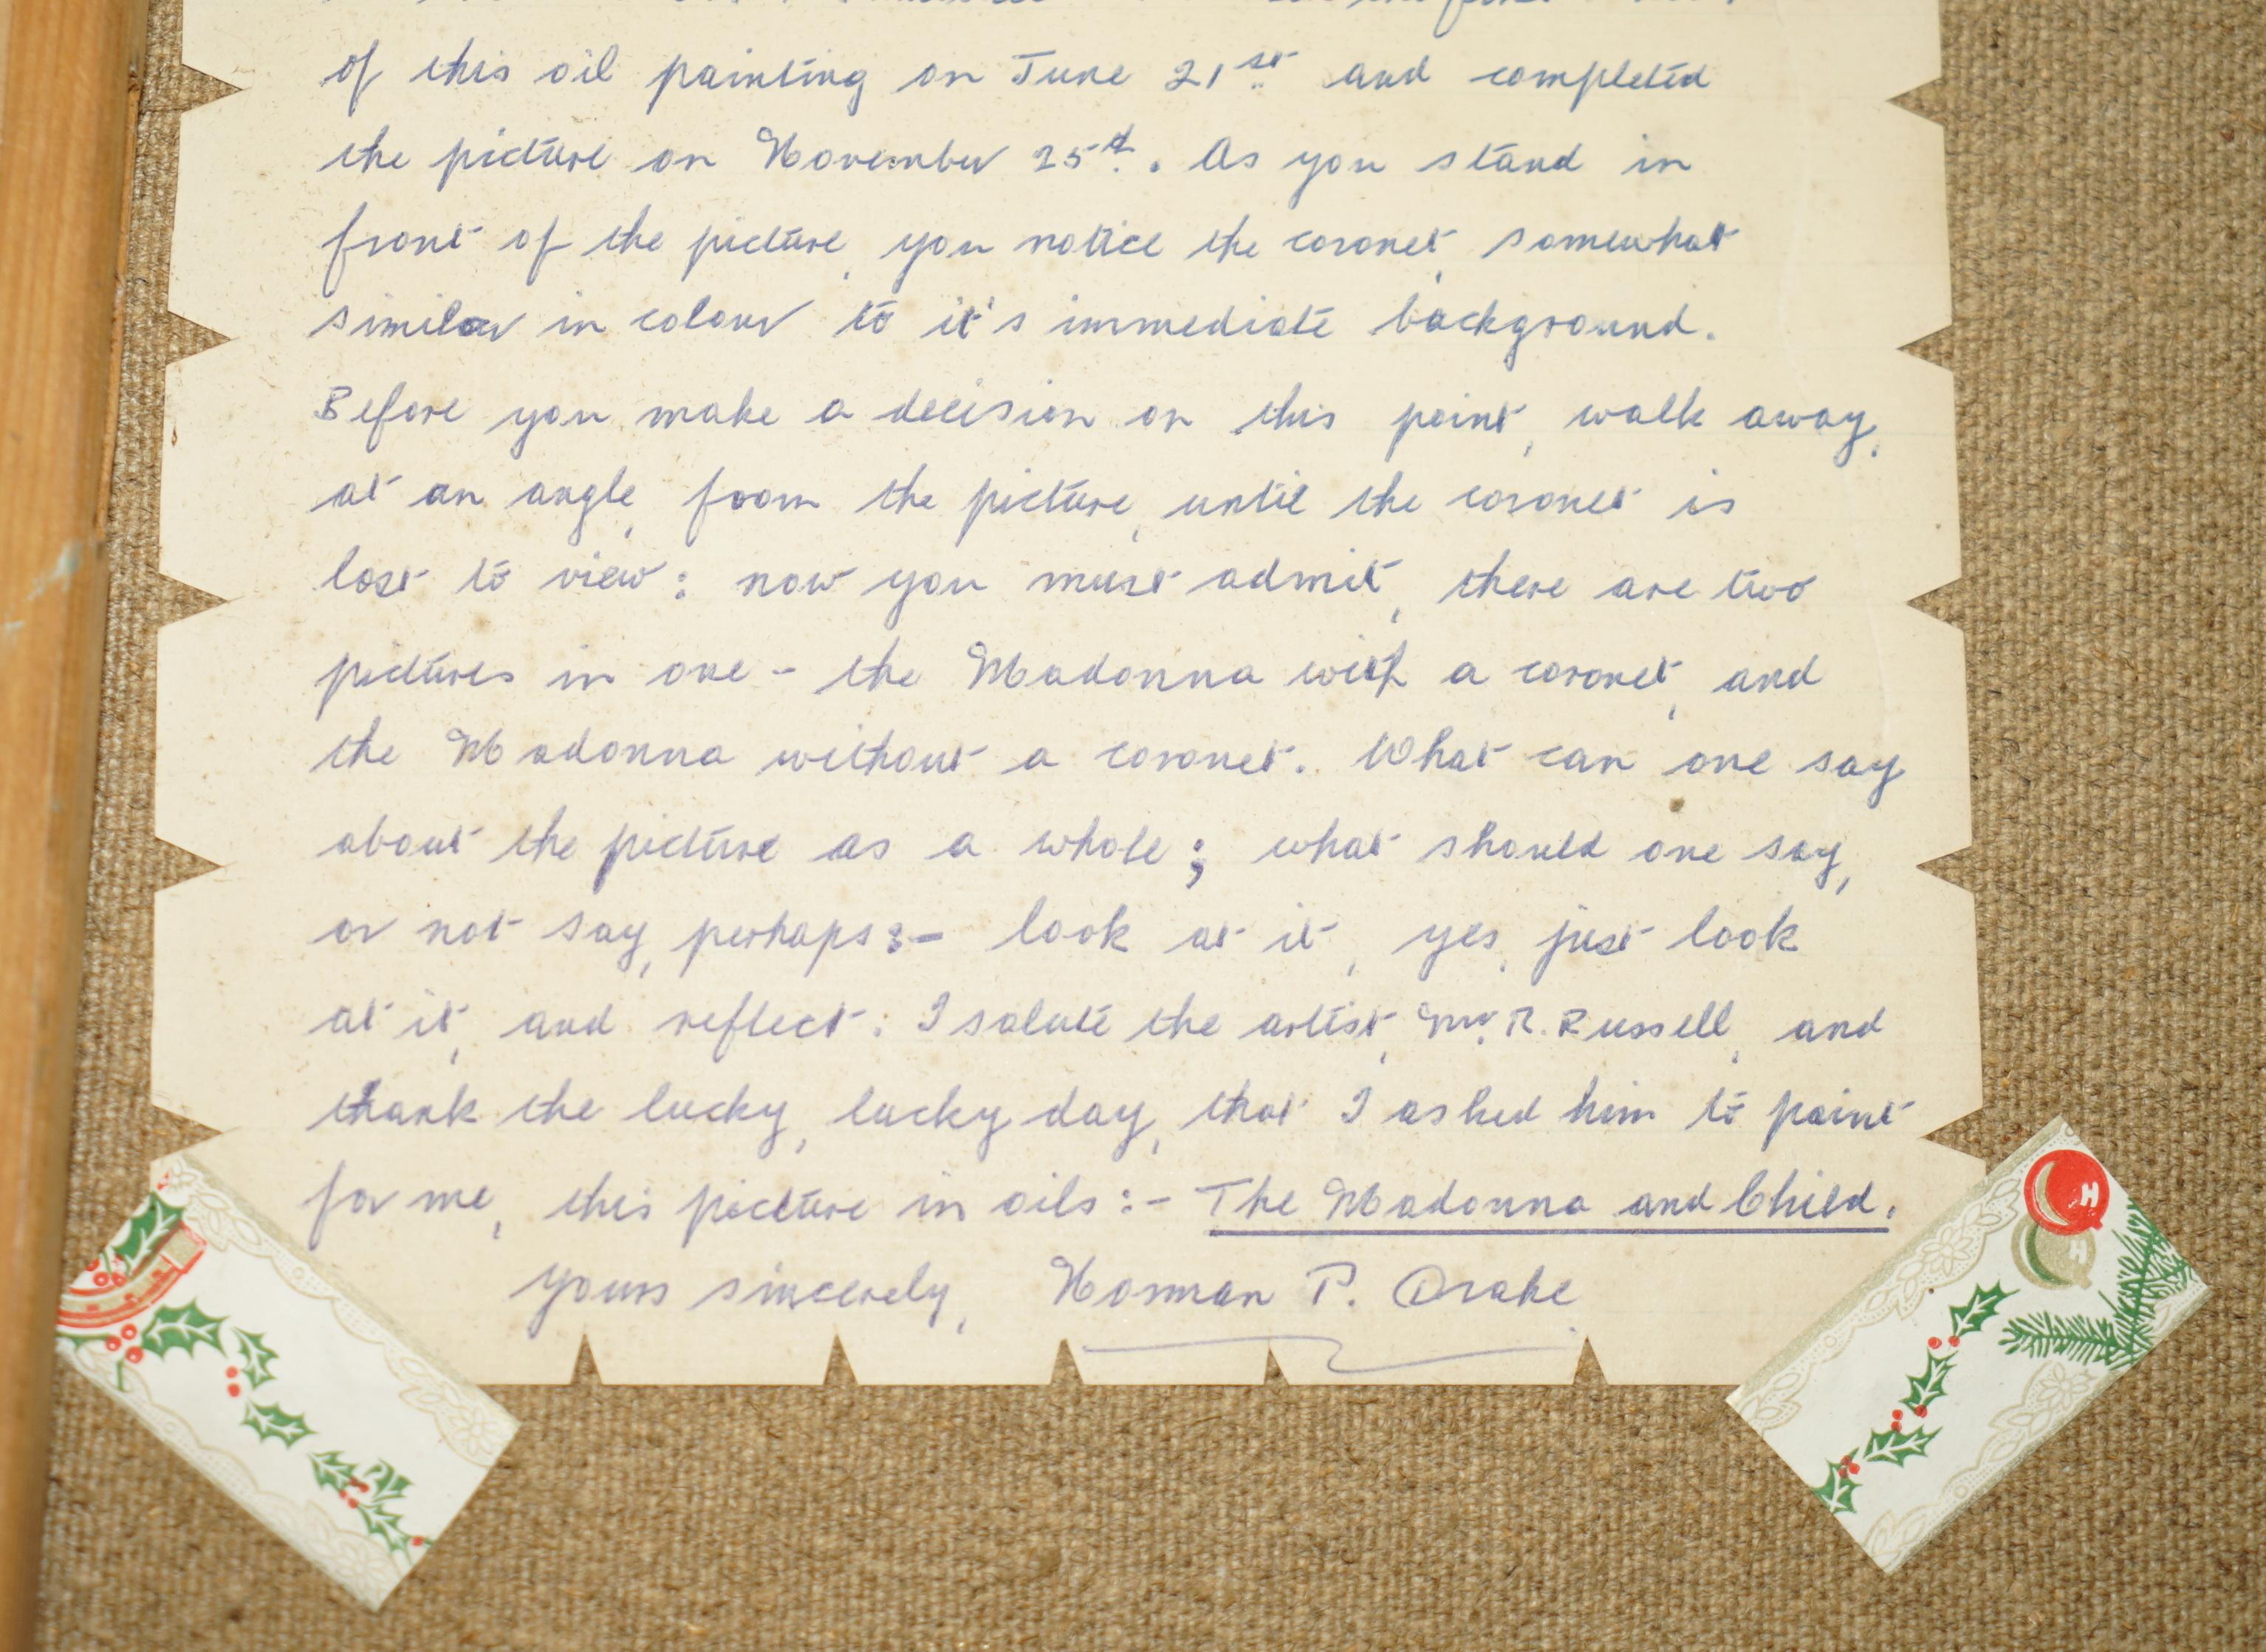 of this oil painting on June 21st and completed
the picture on November 25th. As you stand in
front of the picture, you notice the coronet, somewhat
similar in colour to it's immediate background.
Before you make a decision on this point, walk away,
at an angle, from the picture, until the coronet is
lost to view: now you must admit, there are two
pictures in one - the Madonna with a coronet, and
the Madonna without a coronet. What can one say
about the picture as a whole; what should one say,
or not say, perhaps:- look at it, yes, just look
at it, and reflect. I salute the artist, Mr. R. Russell, and
thank the lucky, lucky day, that I asked him to paint
for me, this picture in oils:- The Madonna and Child.
yours sincerely, Norman P. Drake
H
H